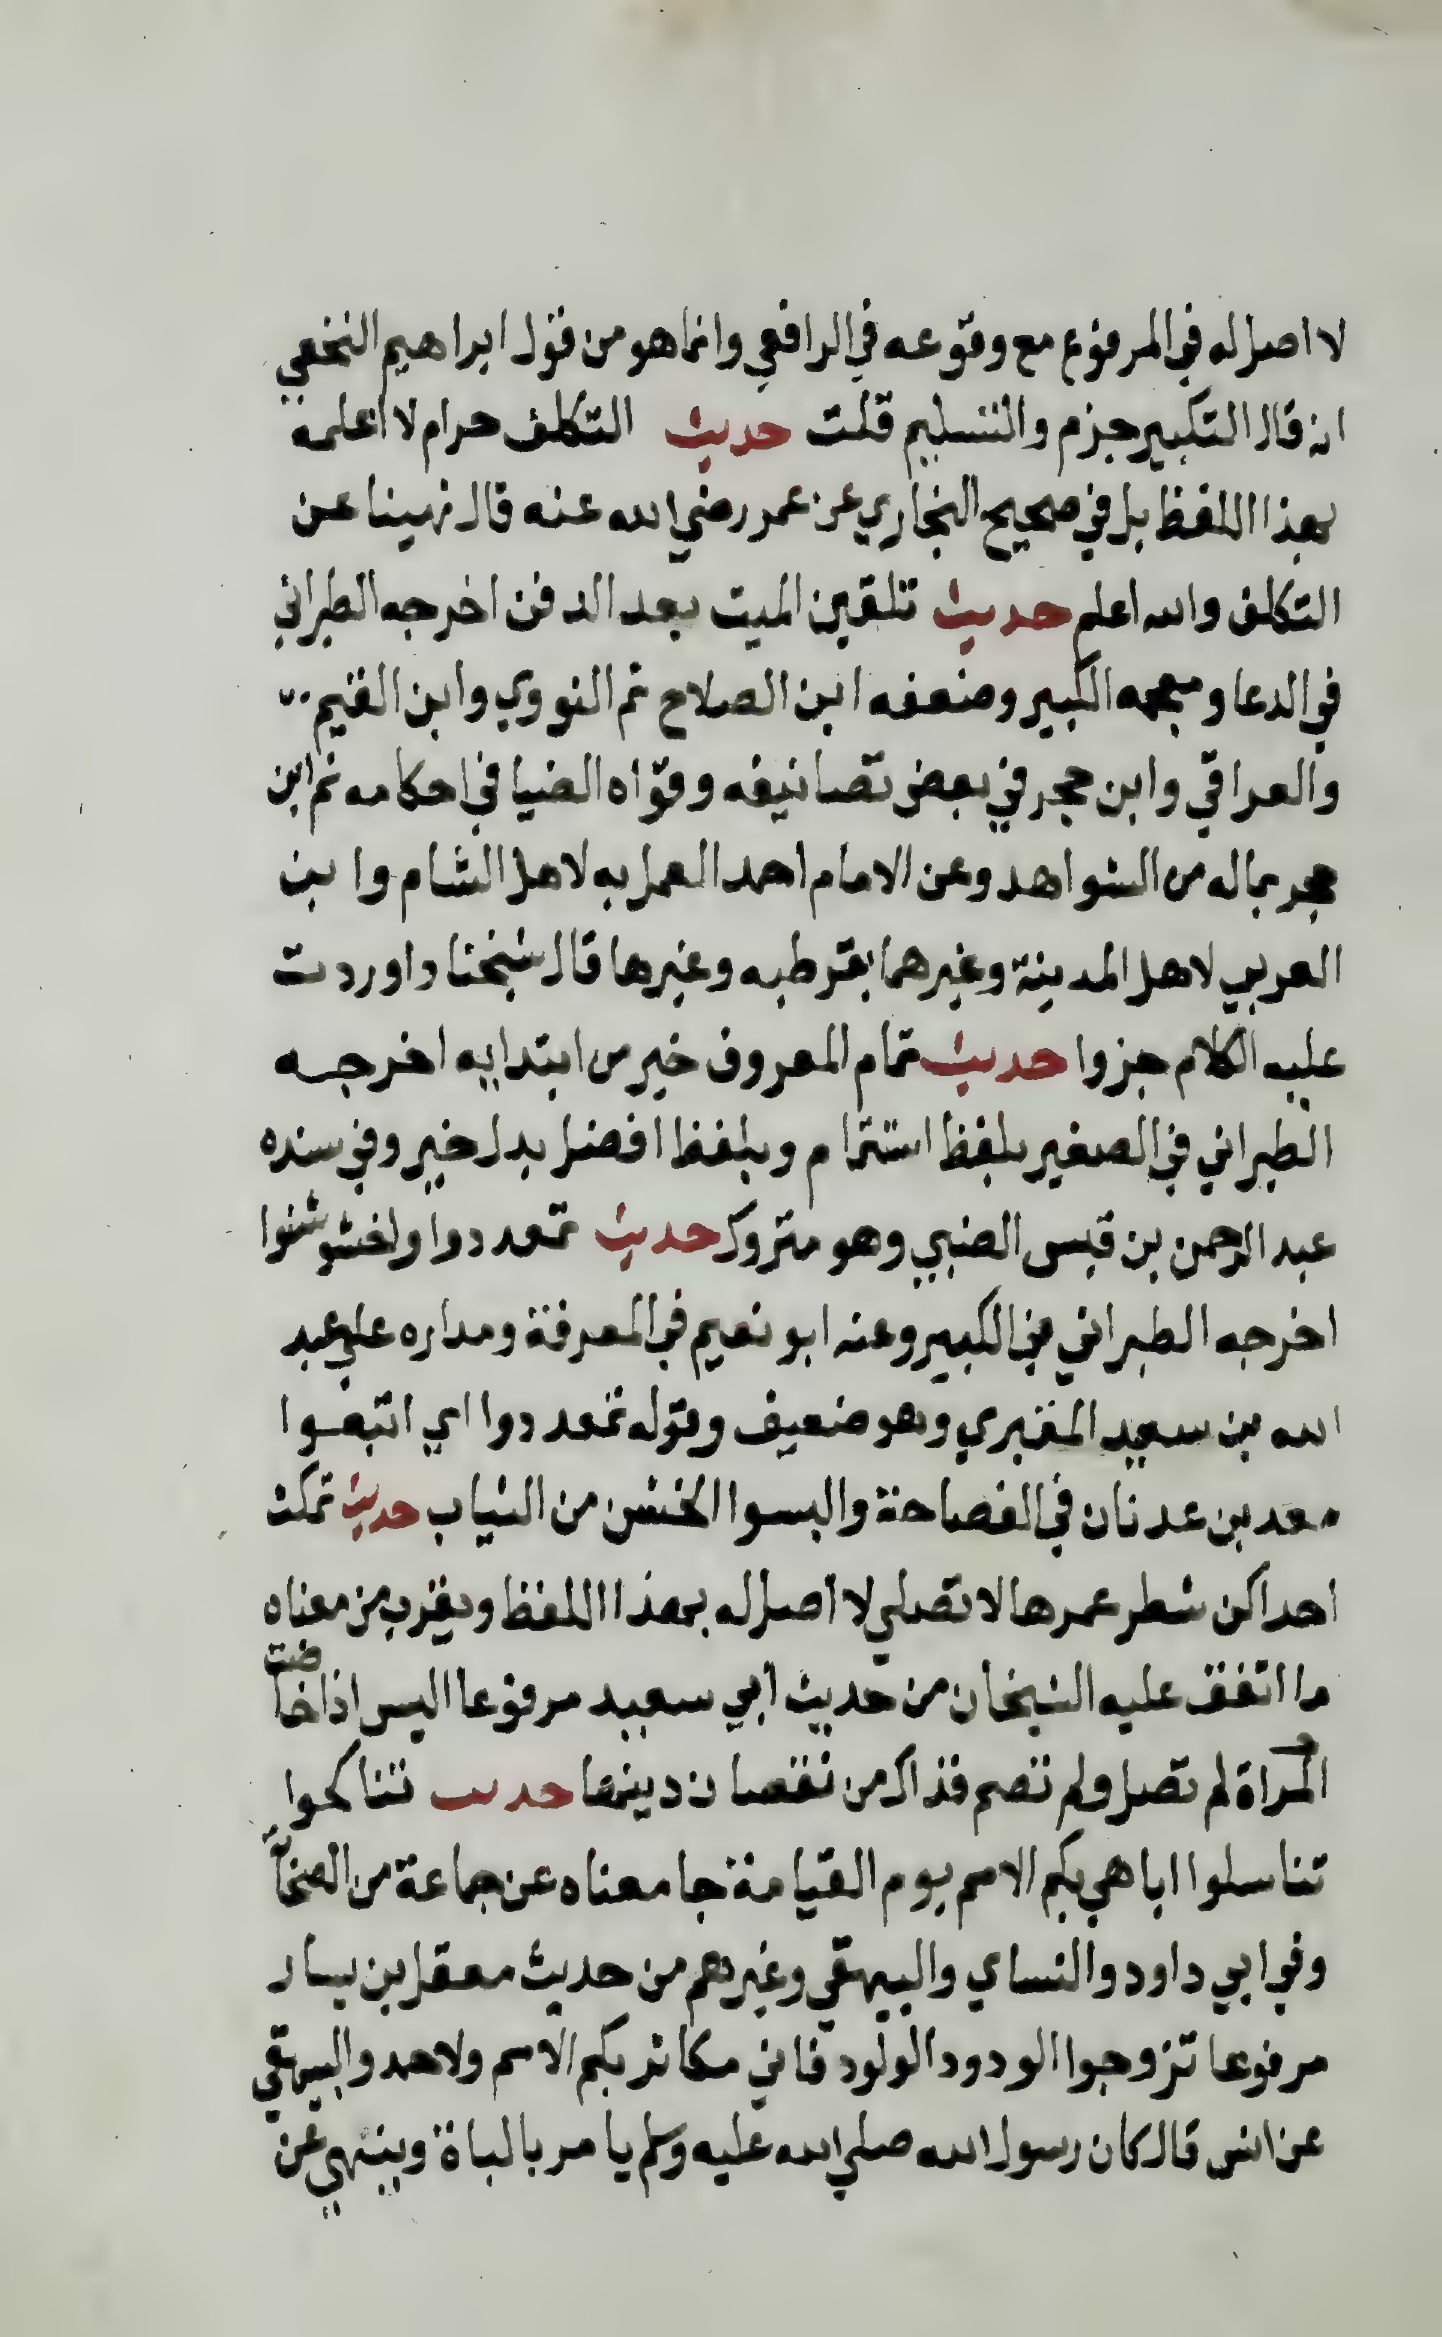 لا اصل له في المرفوع مع وقوعه في الرافعي وانما هو من قول ابراهيم النخعي
انه قال التكبير جزم والتسليم قلت حديث التكلف حرام لا اعلمه
بهذا اللفظ بل في صحيح البخاري عن عمر رضي الله عنه قال نهينا عن
التكلف والله اعلم حديث تلقين الميت بعد الدفن اخرجه الطبراني
في الدعا ومعجمه الكبير وضعفه ابن الصلاح ثم النووي وابن القيم
والعراقي وابن حجر في بعض تصانيفه وقواه الضيا في احكامه ثم ابن
حجر بماله من الشواهد وعن الامام احمد العمل به لاهل الشام وابن
العربي لاهل المدينة وغيرهما بقرطبه وغيرها قال شيخنا واوردت
عليه الكلام جزوا حديث تمام المعروف خير من ابتدايه اخرجه
الطبراني في الصغير بلفظ استتمام وبلفظ افضل بدل خير وفي سنده
عبد الرحمن بن قيس الضبي وهو متروك حديث تمعددوا واخشوشنوا
اخرجه الطبراني في الكبير وعنه ابو نعيم في المعرفة ومداره علي عبد
الله بن سعيد المقبري وهو ضعيف وقوله تمعددوا اي اتبعوا
معد بن عدنان في الفصاحة والبسوا الخشن من الثياب حديث تمكث
احداكن شطر عمرها لا تصلي لا اصل له بهذا اللفظ ويقرب من معناه
ما اتفق عليه الشيخان من حديث ابي سعيد مرفوعا اليس اذا حاضت
المراة لم تصل ولم تصم فذاك من نقصان دينها حديث تناكحوا
تناسلوا اباهي بكم الامم يوم القيامة جا معناه عن جماعة من الصحابة
وفي ابي داود والنساي والبيهقي وغيرهم من حديث معقل بن يسار
مرفوعا تزوجوا الودود الولود فاني مكاثر بكم الامم ولاحمد والبيهقي
عن انس قال كان رسول الله صلي الله عليه وسلم يامر بالباة وينهي عن